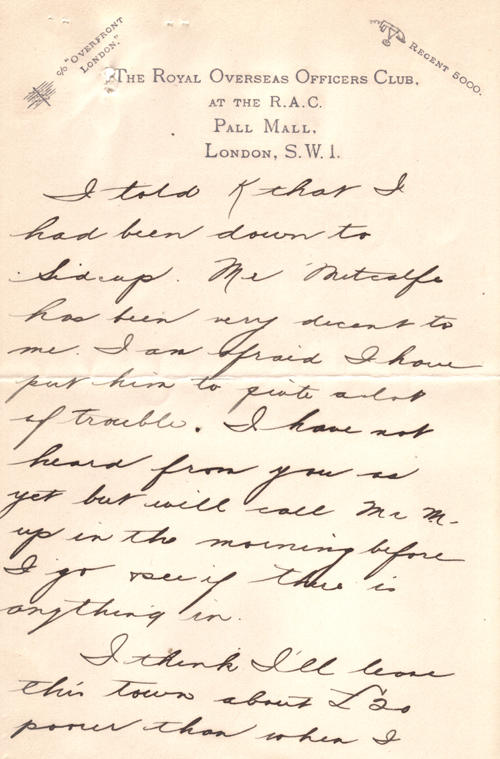 c/o "OVERFRONT
LONDON."
REGENT 5000.
THE ROYAL OVERSEAS OFFICERS CLUB,
AT THE R.A.C.
PALL MALL,
LONDON, S.W.1.
I told K that I
had been down to
Sidcup. Mr Metcalfe
has been very decent to
me. I am afraid I have
put him to quite a lot
of trouble. I have not
heard from you as
yet but will call Mr M-
up in the morning before
I go & see if there is
anything in.
I think I'll leave
this town about £20
poorer than when I